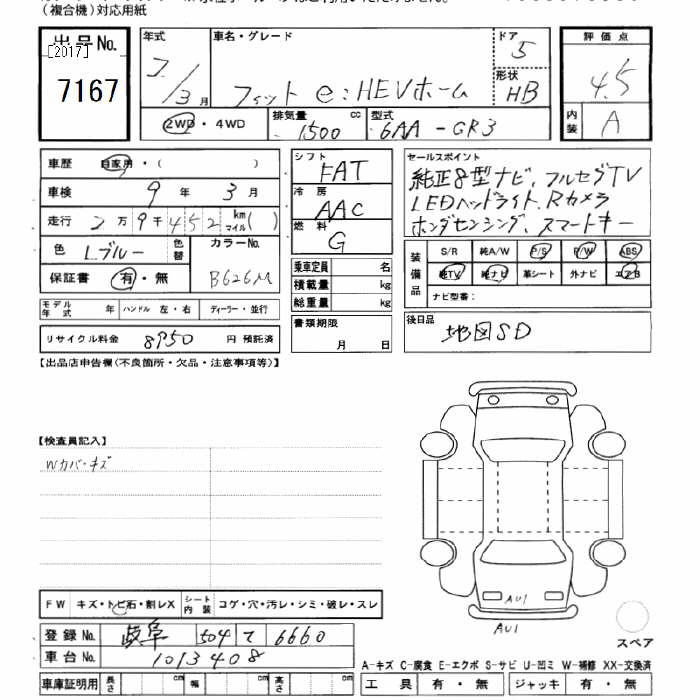 （複合機）対応用紙
出品No. [2017] 7167
年式 2/3月
車名・グレード フィット e:HEVホーム
ドア 5
形状 HB
評価点 4.5
内装 A
2WD・4WD
排気量 1500 cc
型式 6AA-GR3
車歴 自家用・( )
車検 9年 3月
走行 2万9千452 km マイル( )
色 L.ブルー 色替 カラーNo. B626M
保証書 有・無
モデル年式 年 ハンドル 左・右 ディーラー・並行
リサイクル料金 8950 円 預託済
シフト FAT
冷房 AAC
燃料 G
乗車定員 名
積載量 kg
総重量 kg
書類期限 月 日
セールスポイント
純正8型ナビ、フルセグTV
LEDヘッドライト、Rカメラ
ホンダセンシング、スマートキー
装備品 S/R 純A/W P/S P/W ABS
純TV 純ナビ 革シート 外ナビ エアB
ナビ型番：
後日品 地図SD
【出品店申告欄(不良箇所・欠品・注意事項等)】
【検査員記入】
Wカバ・キズ
FW キズ・トビ石・割レX シート内装 コゲ・穴・汚レ・シミ・破レ・スレ
登録No. 岐阜 504 て 6660
車台No. 1013408
車庫証明用 長さ cm 幅 cm 高さ cm
AU1
AU1
スペア
A-キズ C-腐食 E-エクボ S-サビ U-凹ミ W-補修 XX-交換済
工具 有・無 ジャッキ 有・無